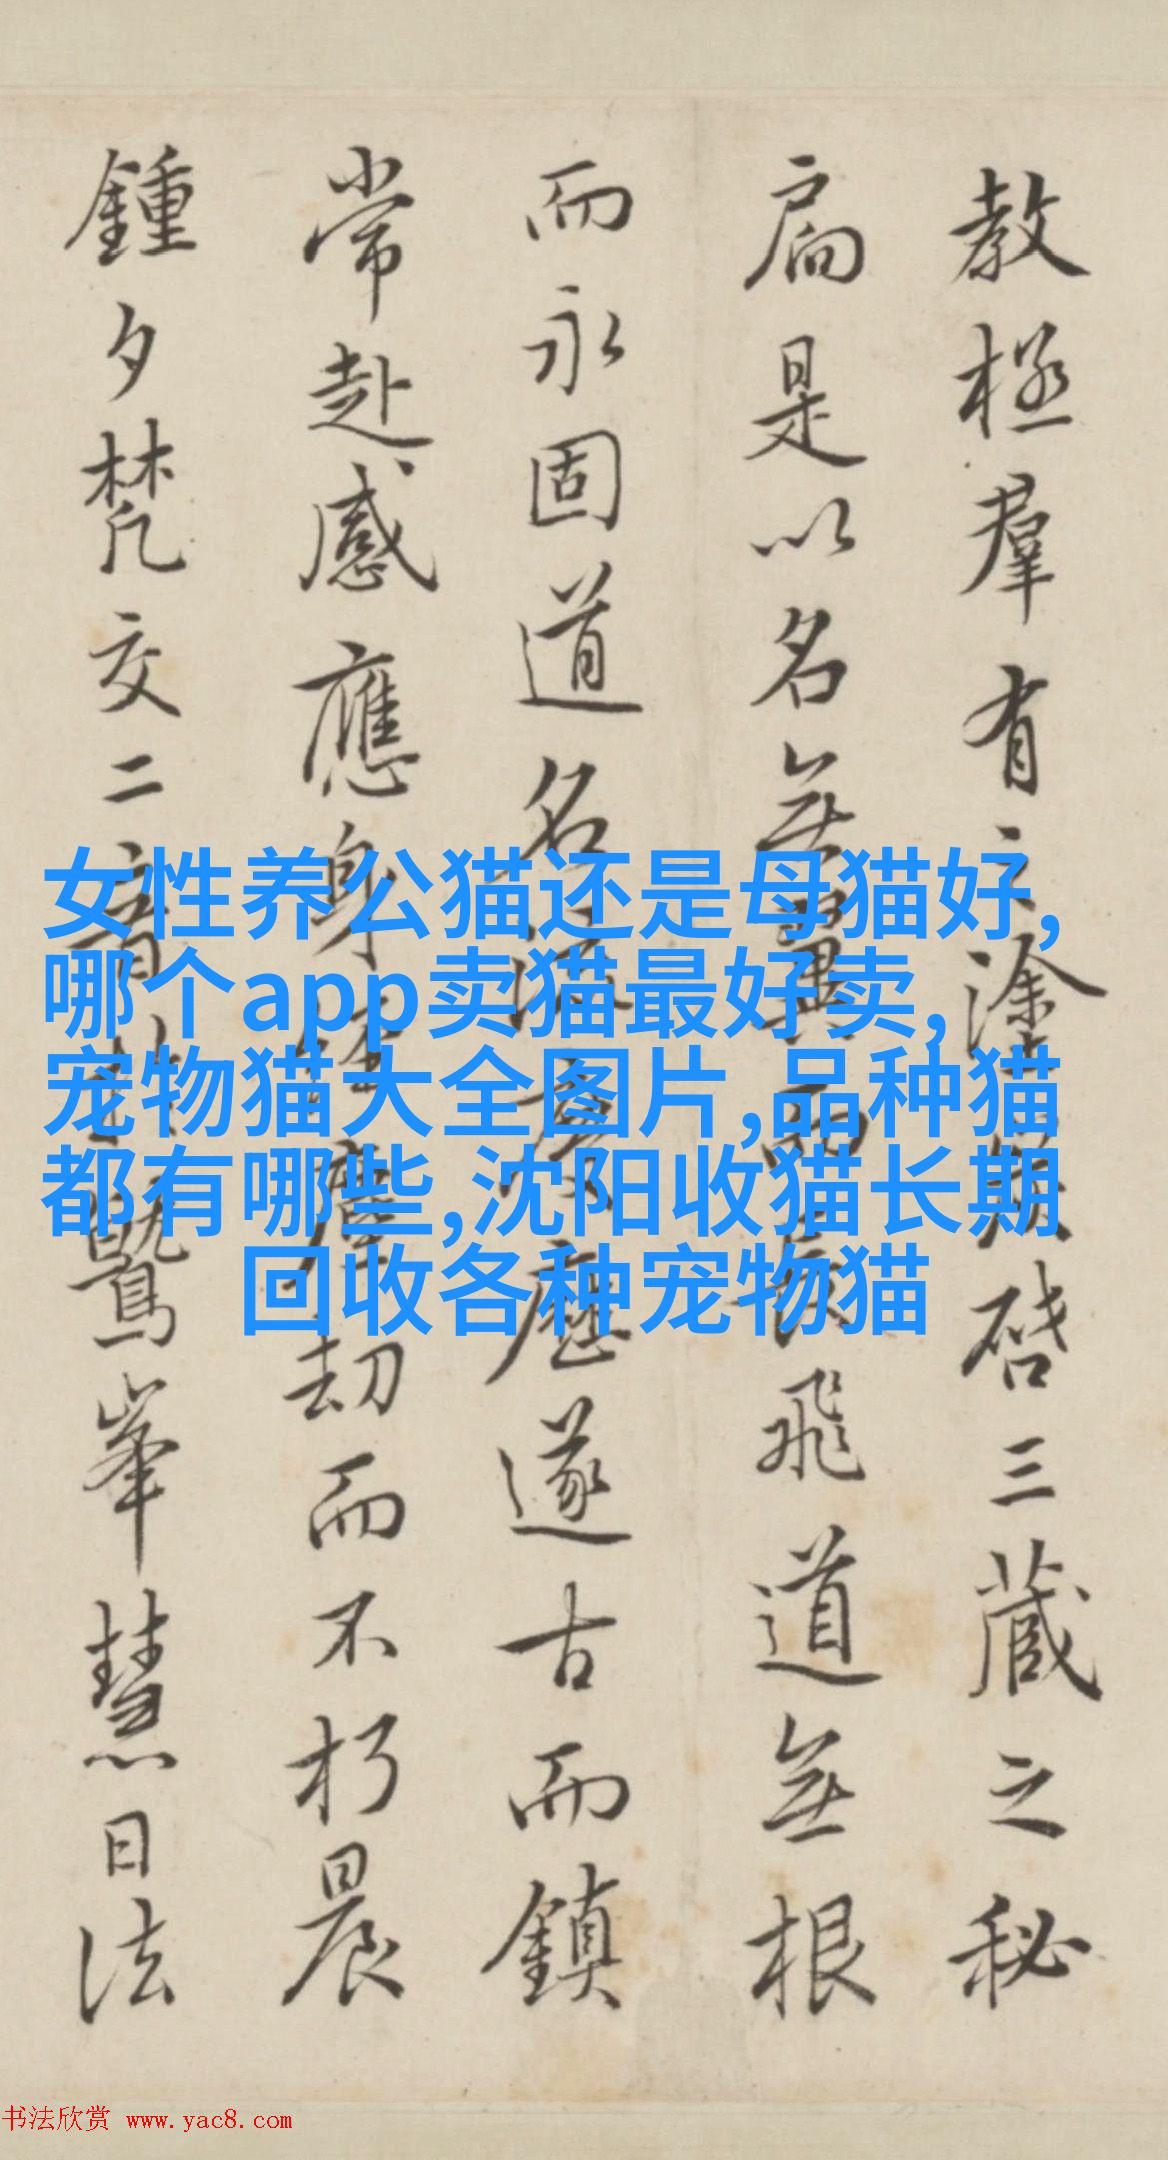 教拯羣有之塗炭啓三藏之秘
扃是以名無翼而長飛道無根
而永固道名流慶歷遂古而鎮
常赴感應身經塵劫而不朽晨
鍾夕梵交二音於鷲峯慧日法
女性养公猫还是母猫好,
哪个app卖猫最好卖,
宠物猫大全图片,品种猫
都有哪些,沈阳收猫长期
回收各种宠物猫
书法欣赏 www.yac8.com